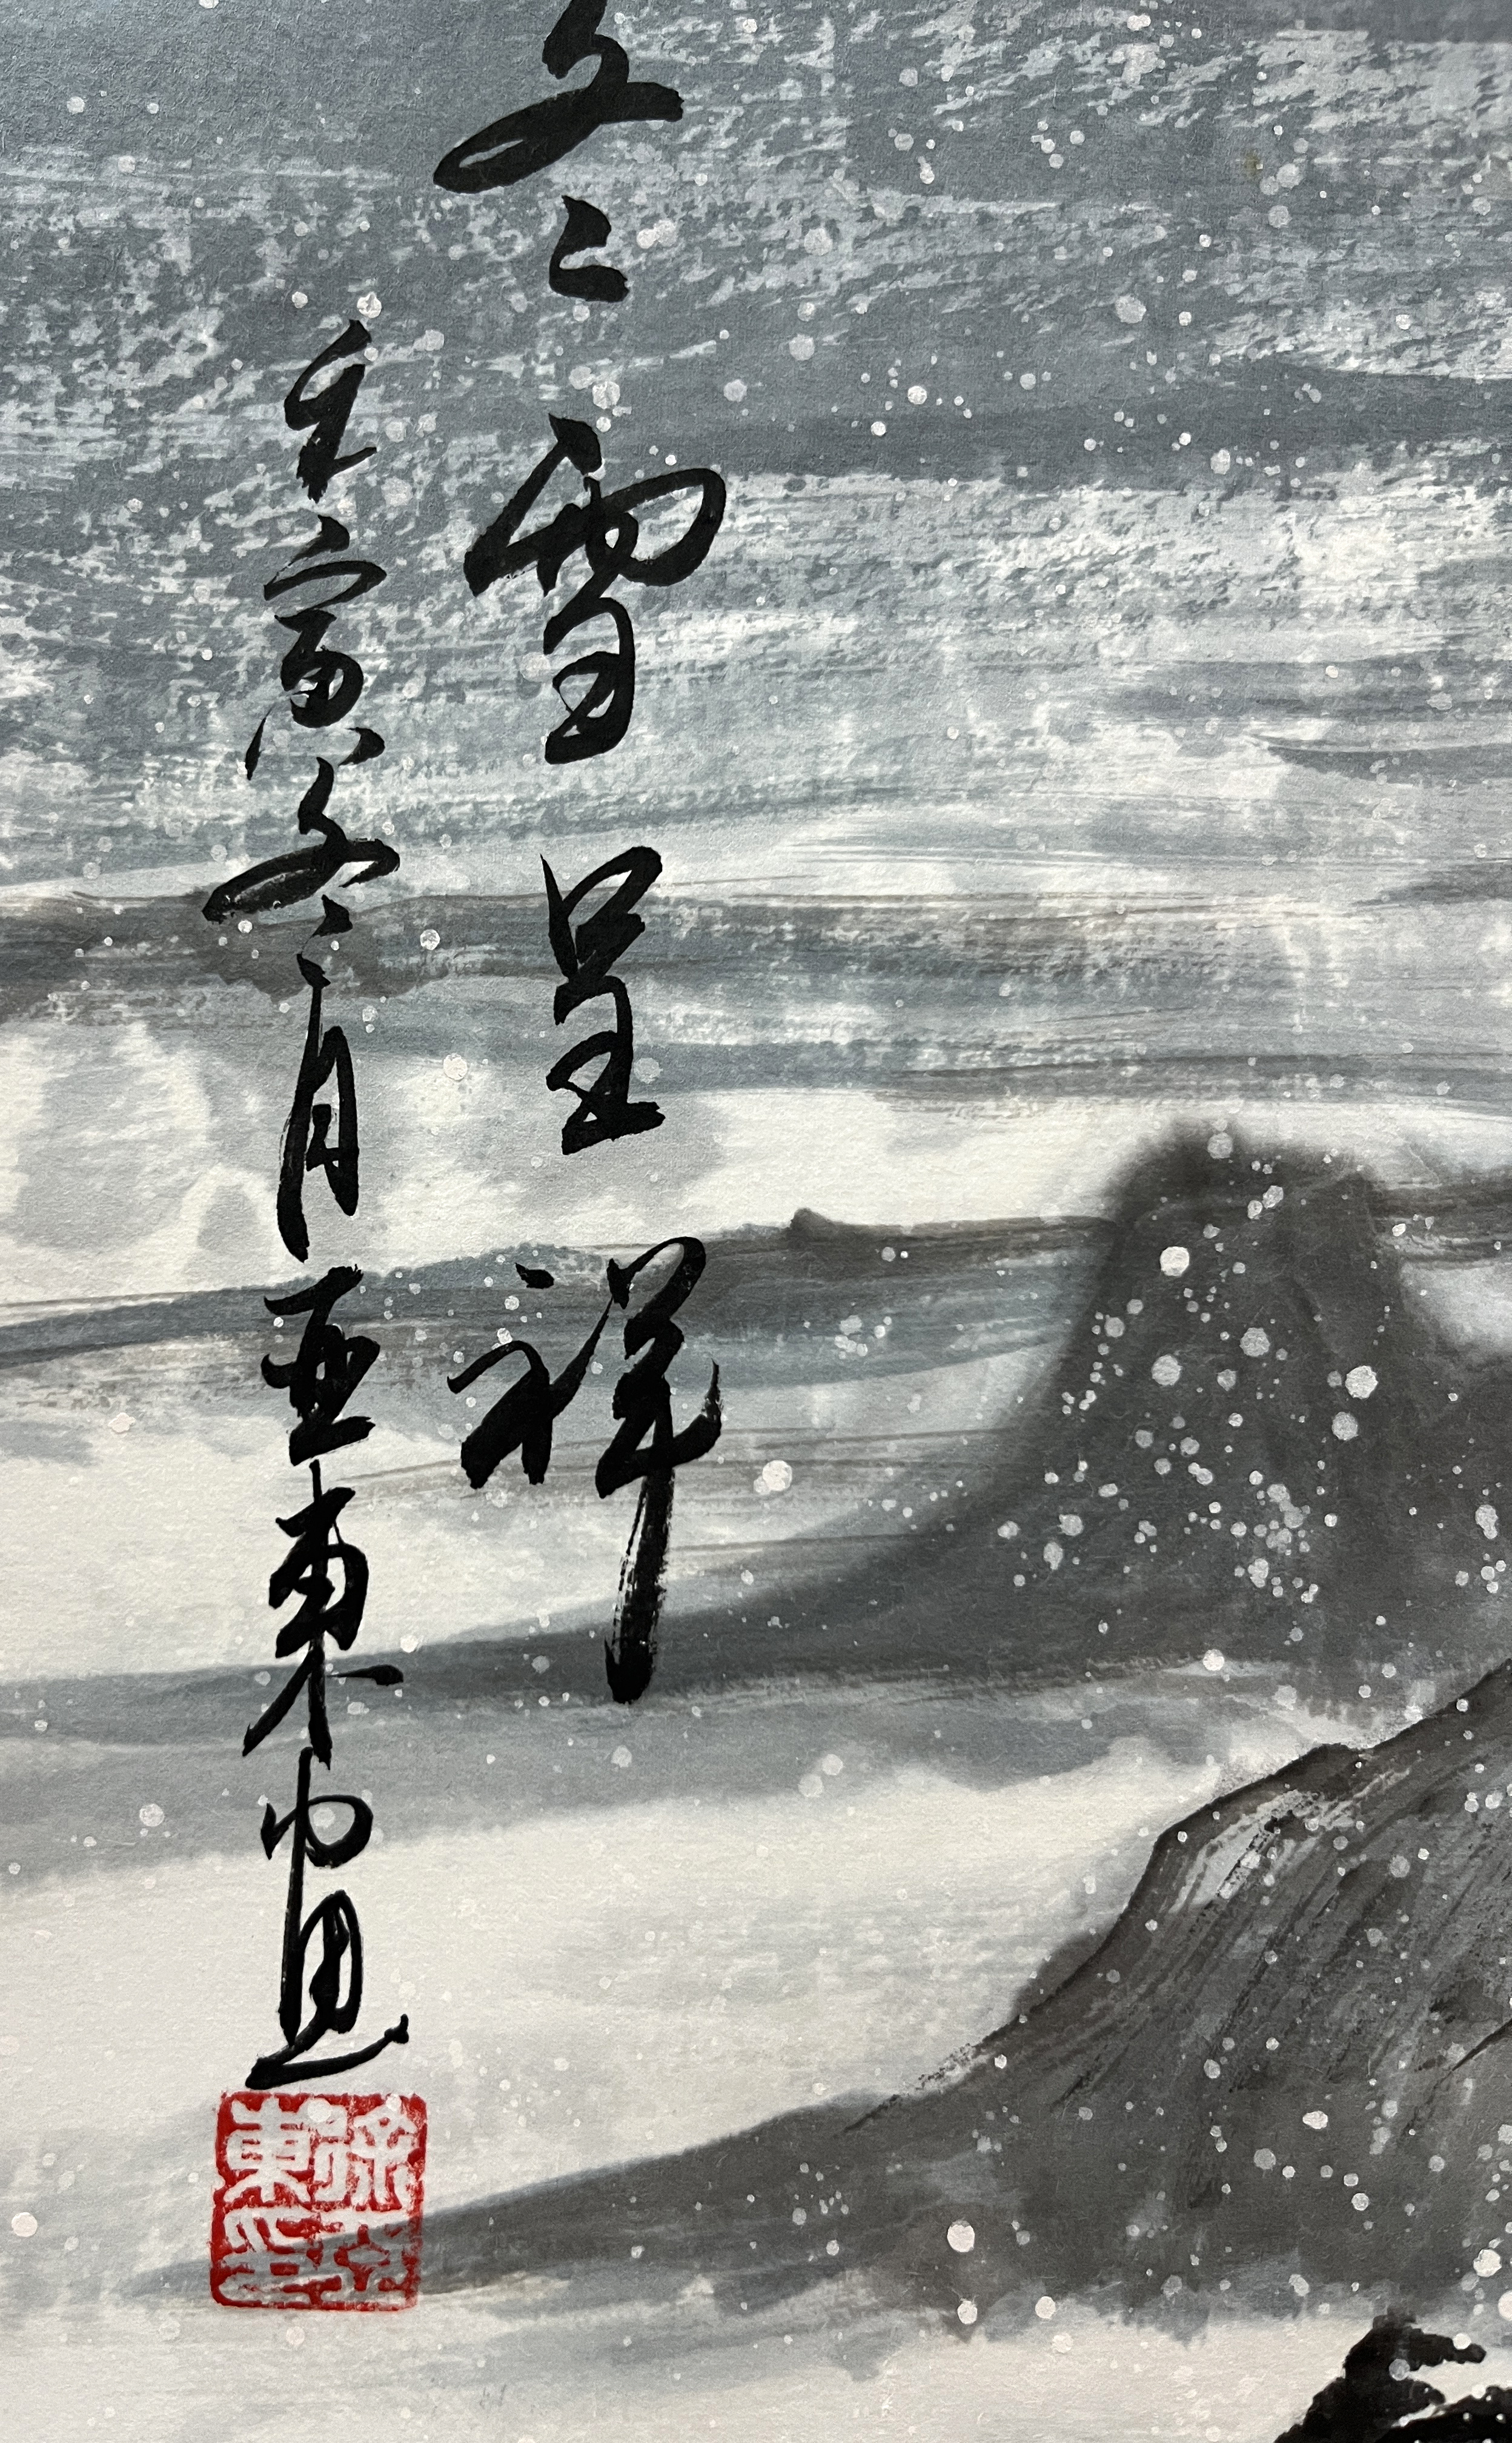 冬雪呈祥
壬寅冬月亞東畫
徐亞東印